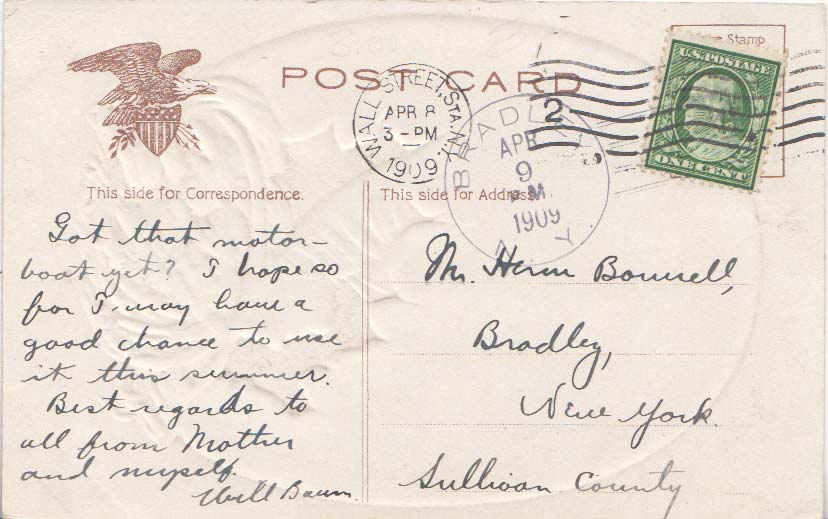 POST CARD
Stamp
U.S. POSTAGE
ONE CENT
WALL STREET, STA. N.Y.
APR 8
3 - PM
1909
2
BRADLEY
APR
9
P.M.
1909
N. Y.
This side for Correspondence.
This side for Address.
Got that motor-
boat yet? I hope so
for I may have a
good chance to use
it this summer.
Best regards to
all from Mother
and myself.
Will Baum.
Mr. Herm Bonnell,
Bradley,
New York.
Sullivan County